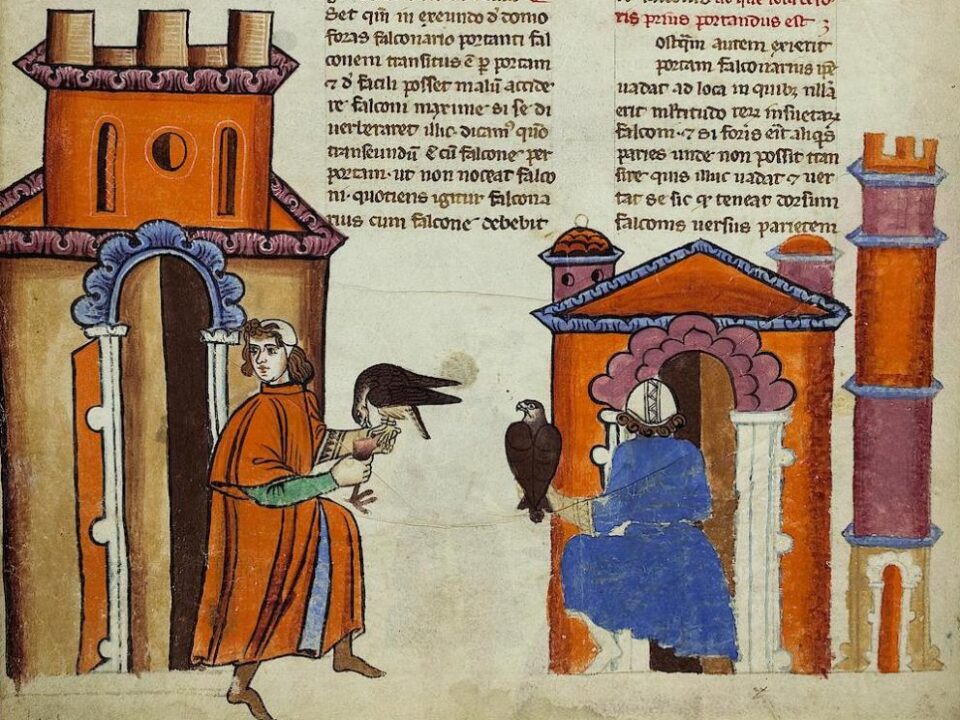 Set qm̄ in exeundo d' domo
foras falconario portanti fal
conem transitus ē ꝑ portam
⁊ d' facili posset malū accide
re falconi maxime si se di
uerberaret illic. dicam' quō
transeundū ē cū falcone per
portam. ut non noceat falco
ni. quotiens igitur falcona
rius cum falcone debebit
ad que loca fo
ris prius portandus est
ostqm̄ autem exierit
portam falconarius ip̄e
uadat ad loca in quibꝫ nulla
erit m̄ltitudo reꝝ insuetaꝝ
falconi. ⁊ si foris erit aliqͥs
paries unde non possit tran
sire quis illuc uadat ⁊ uer
tat se sic ꝙ teneat dorsum
falconis uersus parietem